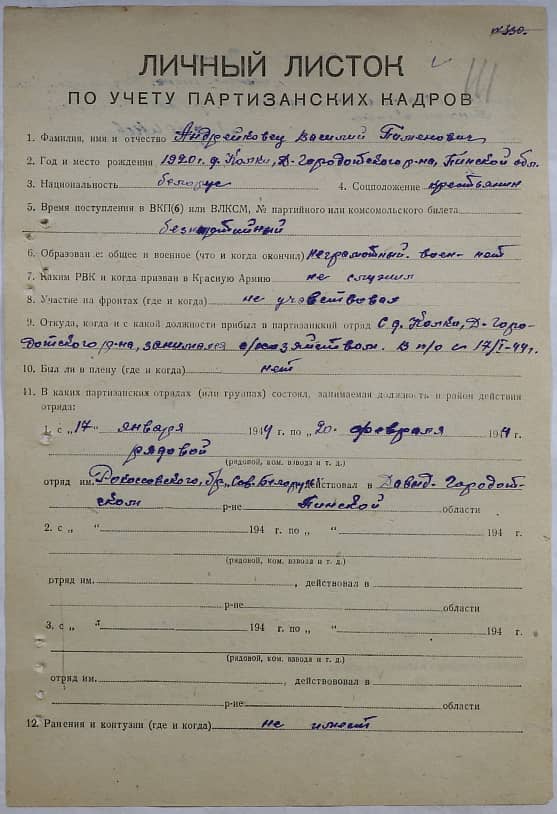 № 330.
ЛИЧНЫЙ ЛИСТОК
ПО УЧЕТУ ПАРТИЗАНСКИХ КАДРОВ
1. Фамилия, имя и отчество Андрейковец Василий Пименович
2. Год и место рождения 1920 г. д. Колки, Д-Городотского р-на, Пинской обл.
3. Национальность белорус 4. Соцположение крестьянин
5. Время поступления в ВКП(б) или ВЛКСМ, № партийного или комсомольского билета
безпартийный
6. Образован е: общее и военное (что и когда окончил) неграмотный. воен- нет
7. Каким РВК и когда призван в Красную Армию не служил
8. Участие на фронтах (где и когда) не учавствовал
9. Откуда, когда и с какой должности прибыл в партизанкий отряд С д. Колки, Д-Горо-
дотского р-на, занимался с/хозяйством. В п/о с 17/I-44г.
10. Был ли в плену (где и когда) нет
11. В каких партизанских отрядах (или группах) состоял, занимаемая должность и район действия
отряда:
1. с „17" января 1944 г. по „20" февраля 1944 г.
рядовой
(рядовой, ком. взвода и т. д.)
отряд им. Рокоссовского, бр. „Сов. Белорус." действовал в Давид-Городот-
ском р-не Пинской области
2. с „ " 194 г. по „ " 194 г.
(рядовой, ком. взвода и т. д.)
отряд им. , действовал в
р-не области
3, с „ " 194 г. по „ " 194 г.
(рядовой, ком. взвода и т. д.)
отряд им. , действововал в
р-не области
12. Ранения и контузии (где и когда) не имеет